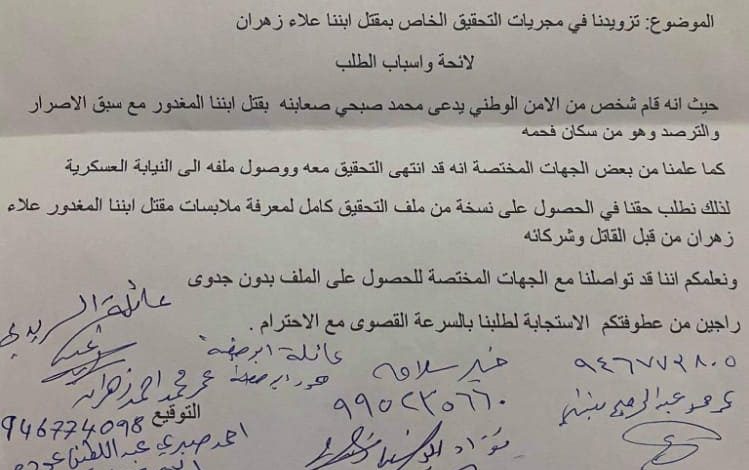 الموضوع: تزويدنا في مجريات التحقيق الخاص بمقتل ابننا علاء زهران
لائحة واسباب الطلب
حيث انه قام شخص من الامن الوطني يدعى محمد صبحي صعابنه بقتل ابننا المغدور مع سبق الاصرار
والترصد وهو من سكان فحمه
كما علمنا من بعض الجهات المختصة انه قد انتهى التحقيق معه ووصول ملفه الى النيابة العسكرية
لذلك نطلب حقنا في الحصول على نسخة من ملف التحقيق كامل لمعرفة ملابسات مقتل ابننا المغدور علاء
زهران من قبل القاتل وشركائه
ونعلمكم اننا قد تواصلنا مع الجهات المختصة للحصول على الملف بدون جدوى
راجين من عطوفتكم الاستجابة لطلبنا بالسرعة القصوى مع الاحترام .
عائلة
عائلة ابو صفية
خير سلامه
٩٤٦٧٧٣٨٠٥
عمر محمد احمد زهران
٩٩٥٢٣٥٦٦٠
التوقيع
946774098
احمد صبري عبد اللطيف
فؤاد